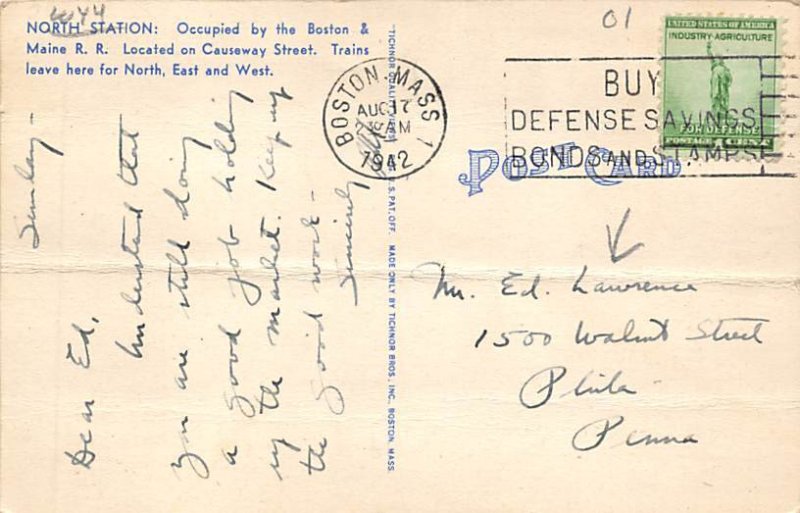 W44
01
NORTH STATION: Occupied by the Boston &
Maine R. R. Located on Causeway Street. Trains
leave here for North, East and West.
Sunday -
Dear Ed,
Understand that
you are still doing
a good job holding
up the market. Keep up
the good work -
Sincerely
"TICHNOR QUALITY VIEWS," REG. U. S. PAT. OFF. MADE ONLY BY TICHNOR BROS., INC., BOSTON, MASS.
BOSTON, MASS. 1
AUG 17
AM
1942
BUY
DEFENSE SAVINGS
BONDS AND STAMPS
UNITED STATES OF AMERICA
INDUSTRY-AGRICULTURE
FOR DEFENSE
POSTAGE
POST CARD
Mr. Ed. Lawrence
1500 Walnut Street
Phila
Penna